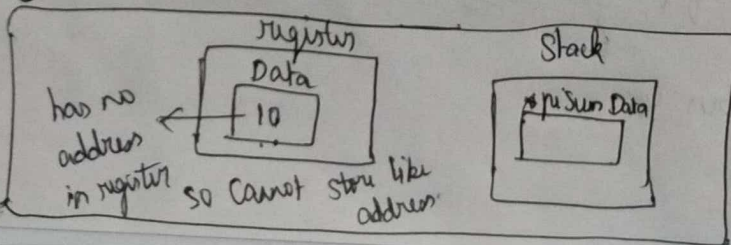 register
Stack
Data
10
has no
address
in register
so cannot store like
address.
*piSum Data